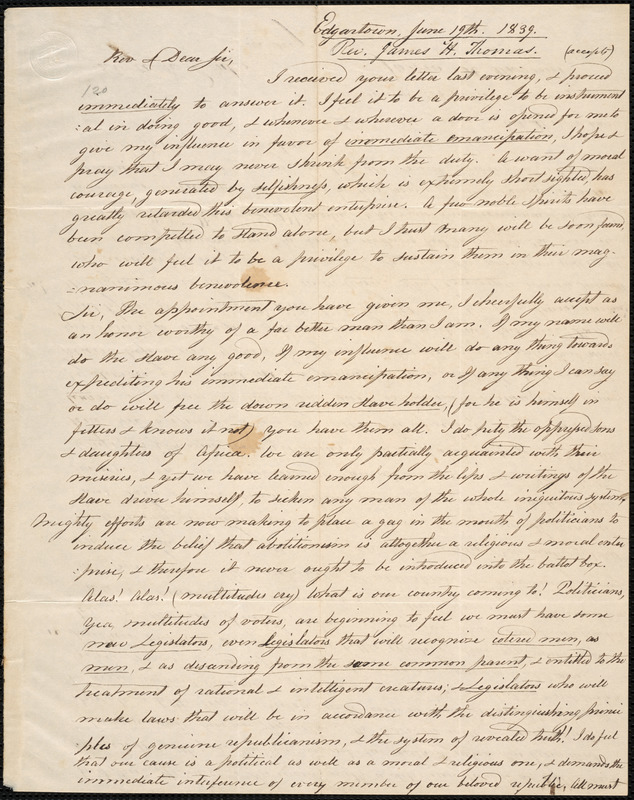 Edgartown, June 19th. 1839.
Rev. James H. Thomas. (accepts)
Rev & Dear Sir,
I received your letter last evening, & proceed
120
immediately to answer it. I feel it to be a privilege to be instrument
:al in doing good, & whenever & wherever a door is opened for me to
give my influence in favor of immediate emancipation, I hope &
pray that I may never shrink from the duty. A want of moral
courage, generated by selfishness, which is extremely short sighted, has
greatly retarded this benevolent enterprise. A few noble spirits have
been compelled to stand alone, but I trust many will be soon found,
who will feel it to be a privilege to sustain them in their mag-
:nanimous benevolence.
Sir, the appointment you have given me, I cheerfully accept as
an honor worthy of a far better man than I am. If my name will
do the slave any good, If my influence will do any thing towards
expediting his immediate emancipation, or If any thing I can say
or do will free the down rodden slave holder, (for he is himself in
fetters & knows it not) you have them all. I do pity the oppressed sons
& daughters of Africa. We are only partially acquainted with their
miseries, & yet we have learned enough from the lips & writings of the
slave driver himself, to sicken any man of the whole iniquitous system.
Mighty efforts are now making to place a gag in the mouth of politicians to
induce the belief that abolitionism is altogether a religious & moral enter
:prise, & therefore it never ought to be introduced into the ballot box.
Alas! Alas! (multitudes cry) what is our country coming to! Politicians,
yea multitudes of voters, are beginning to feel we must have some
new Legislators, even Legislators that will recognize colored men, as
men, & as descending from the same common parent, & entitled to the
treatment of rational & intelligent creatures; & Legislators who will
make laws that will be in accordance with the distinguishing princi
:ples of genuine republicanism, & the system of revealed truth! I do feel
that our cause is a political as well as a moral & religious one, & demands the
immediate interference of every member of our beloved republic, All must